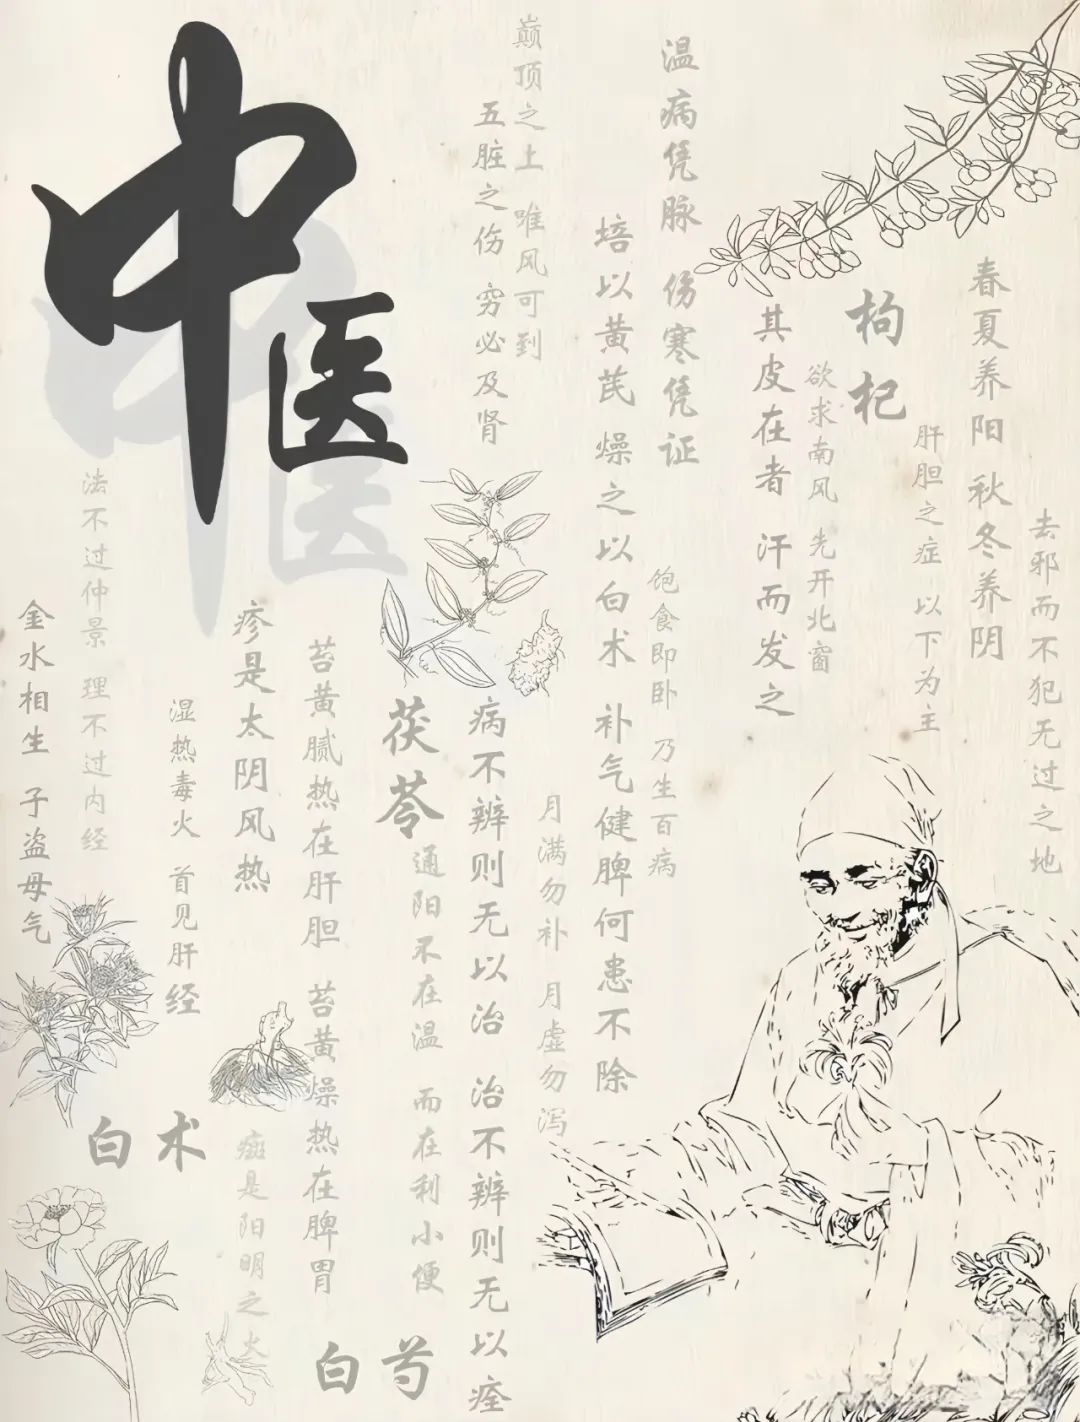 中医
春夏养阳 秋冬养阴
去邪而不犯无过之地
肝胆之症 以下为主
枸杞
欲求南风 先开北窗
其皮在者 汗而发之
温病凭脉 伤寒凭证
饱食即卧 乃生百病
培以黄芪 燥之以白术 补气健脾何患不除
巅顶之土 唯风可到
五脏之伤 穷必及肾
月满勿补 月虚勿泻
病不辨则无以治 治不辨则无以痊
茯苓
通阳不在温 而在利小便
苔黄腻热在肝胆 苔黄燥热在脾胃
疹是太阴风热
斑是阳明之火
湿热毒火 首见肝经
法不过仲景 理不过内经
金水相生 子盗母气
白术
白芍